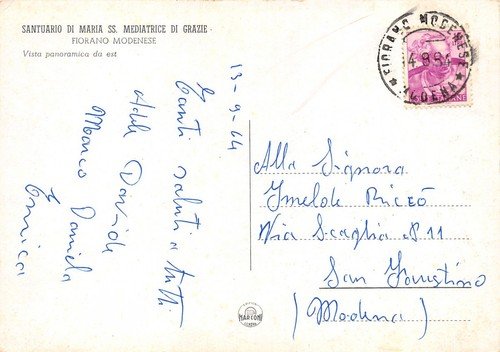 SANTUARIO DI MARIA SS. MEDIATRICE DI GRAZIE
FIORANO MODENESE
Vista panoramica da est
FIORANO MODENESE
MODENA
13-9-64
Tanti saluti a tutti
Adele Davide
Marco Daniela
Enrica
Alla Signora
Imelde
Via Scaglia N 11
San Faustino
(Modena)